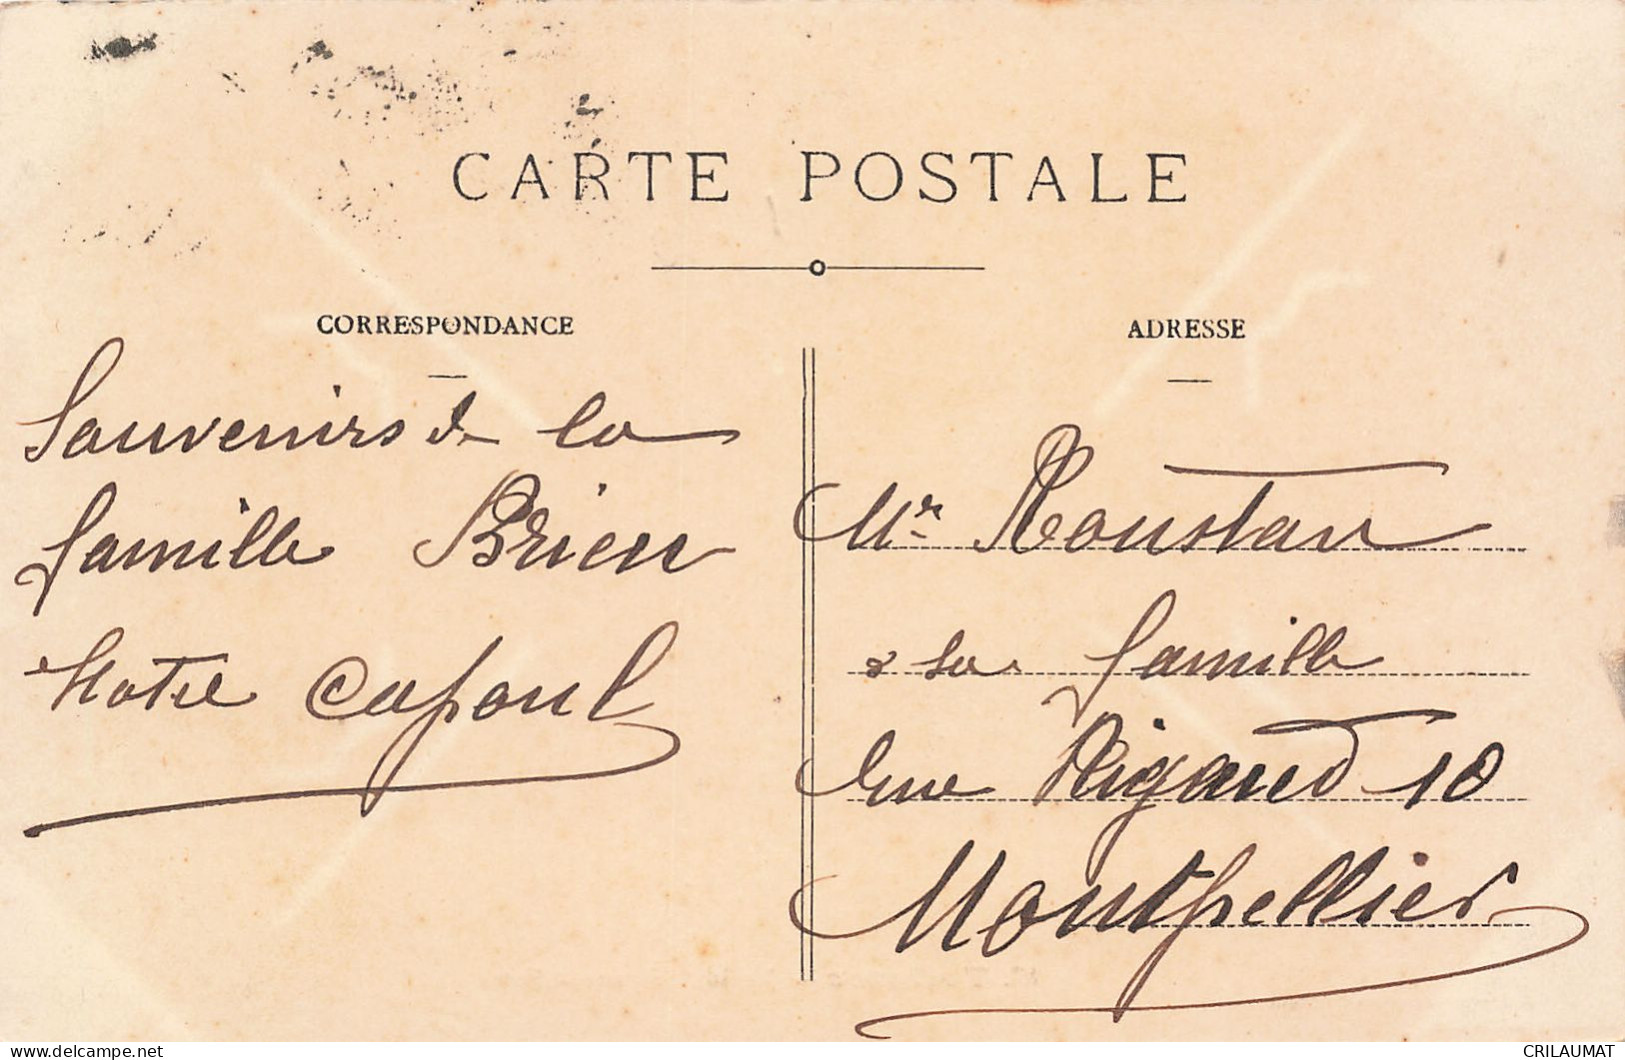 CARTE POSTALE
CORRESPONDANCE
Souvenirs de la
famille Brieu
Notre Capoul
ADRESSE
Mr Roustan
& sa famille
rue Rigaud 10
Montpellier
delcampe.net
CRILAUMAT